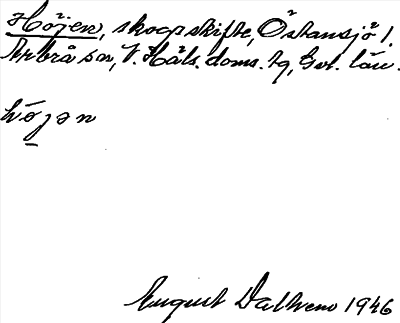 Höjen, skogsskifte, Östansjö 1.
Arbrå sn, V. Häls. doms. tg, Gvl. län.
höjən
August Dalhem 1946